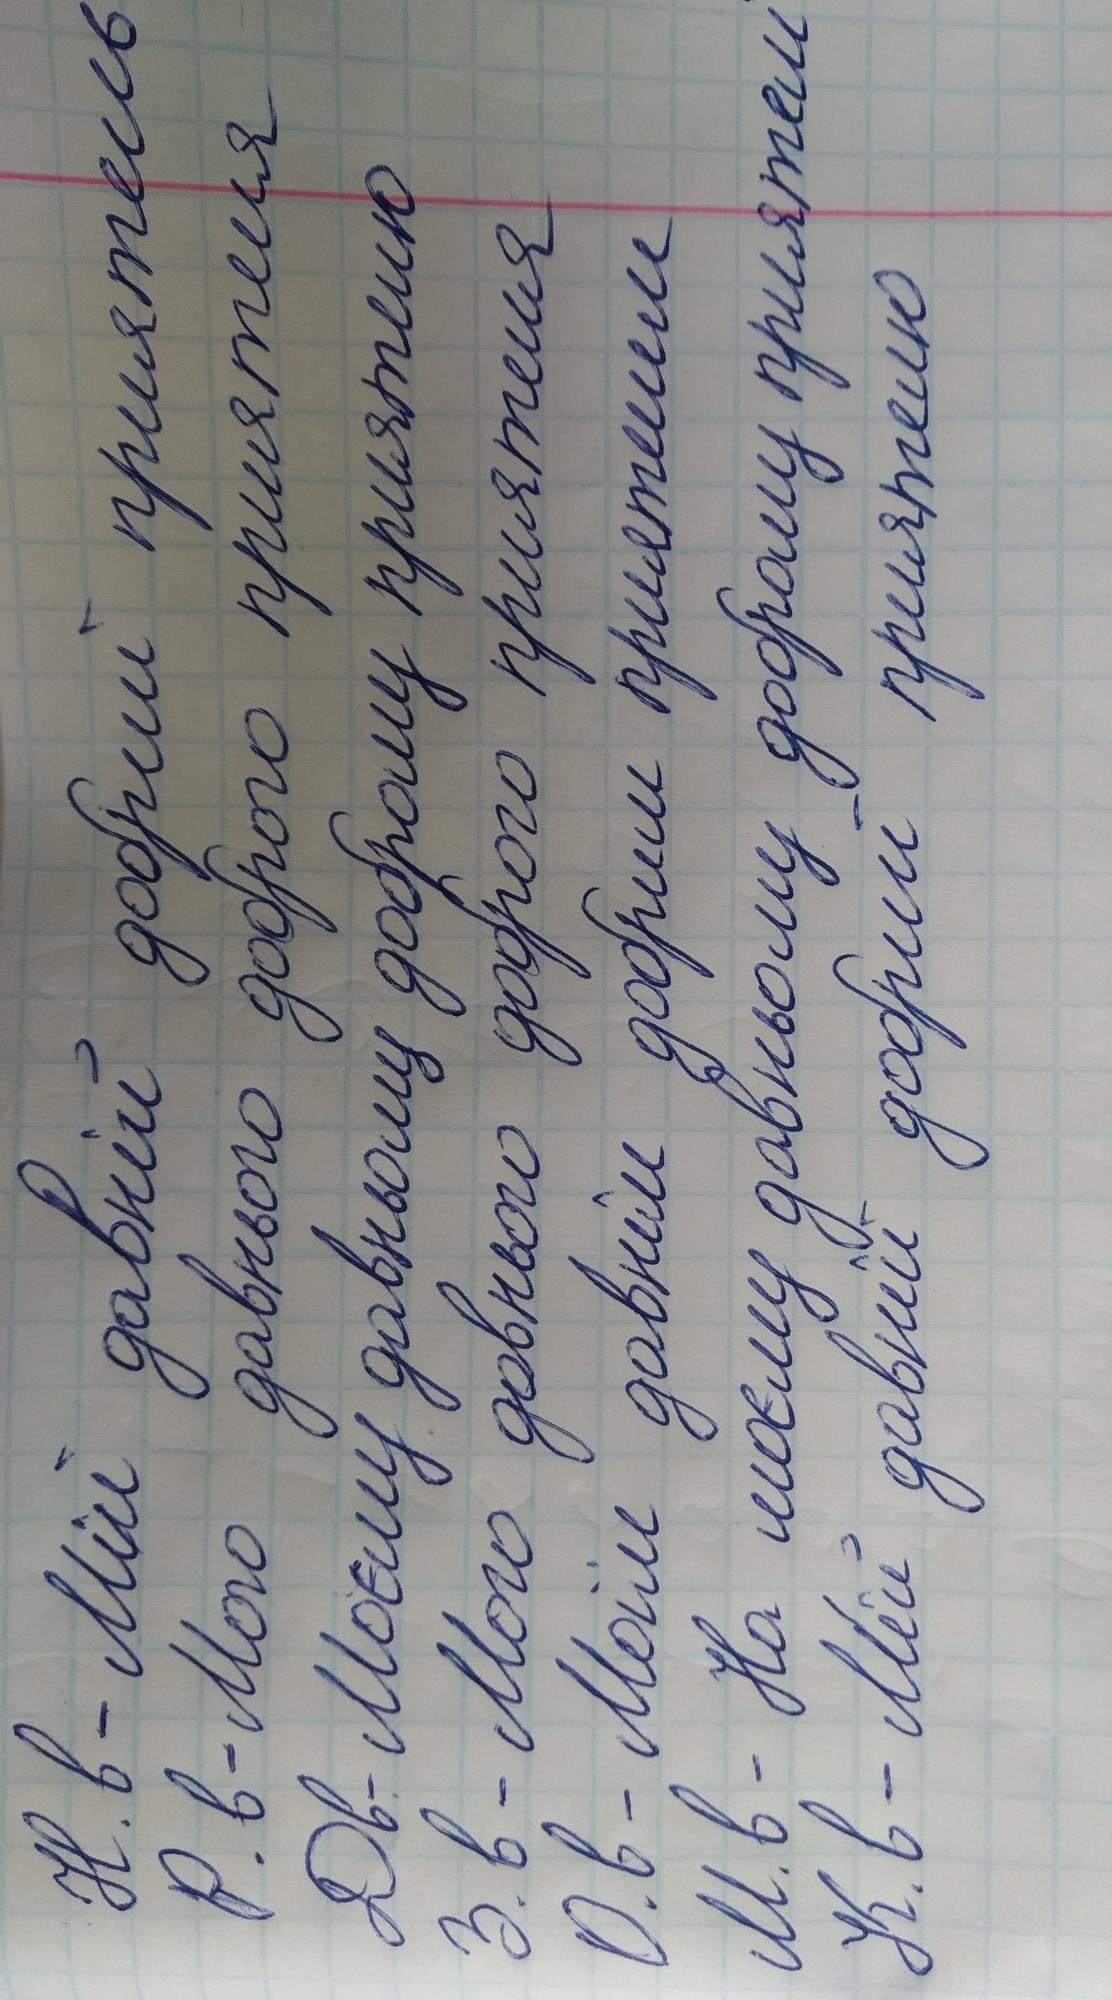 Н.в - Мій давній добрий приятель
Р.в - Мого давнього доброго приятеля
Дв. - Моєму давньому доброму приятелю
З.в - Мого давнього доброго приятеля
О.в - Моїм давнім добрим приятелем
М.в - На моєму давньому доброму приятелі
К.в - Мій давній добрий приятелю